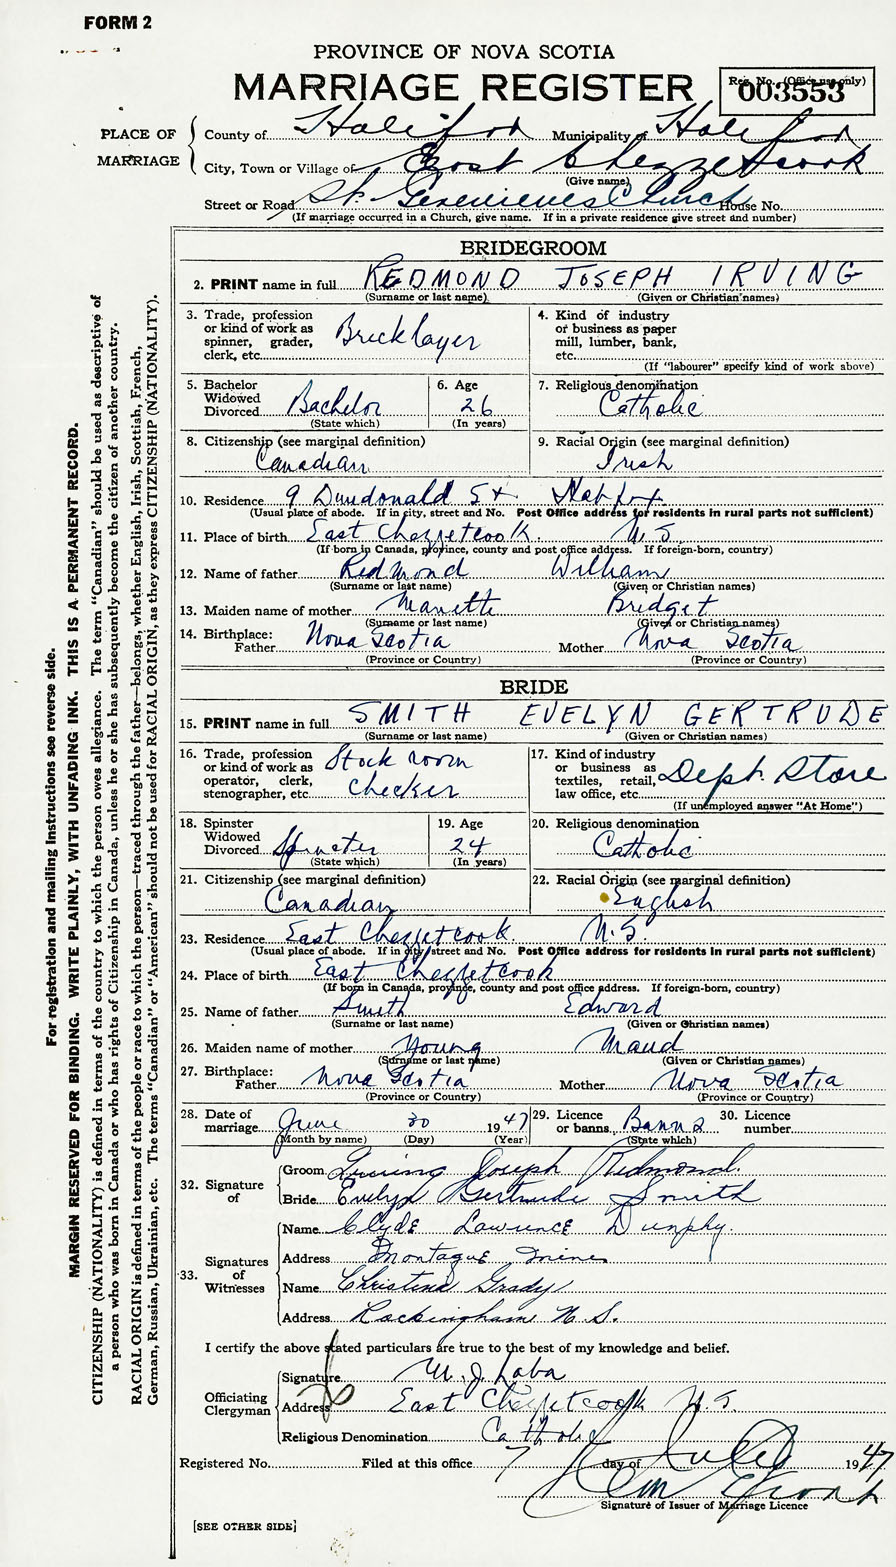 FORM 2
PROVINCE OF NOVA SCOTIA
MARRIAGE REGISTER
Reg. No. (Office use only)
003553
PLACE OF MARRIAGE
County of Halifax Municipality of Halifax
City, Town or Village of East Chezzetcook
(Give name)
Street or Road St. Genevieves Church House No.
(If marriage occurred in a Church, give name. If in a private residence give street and number)
BRIDEGROOM
2. PRINT name in full REDMOND JOSEPH IRVING
(Surname or last name) (Given or Christian names)
3. Trade, profession or kind of work as spinner, grader, clerk, etc. Bricklayer
4. Kind of industry or business as paper mill, lumber, bank, etc.
(If "labourer" specify kind of work above)
5. Bachelor Widowed Divorced Bachelor
(State which)
6. Age 26
(In years)
7. Religious denomination Catholic
8. Citizenship (see marginal definition) Canadian
9. Racial Origin (see marginal definition) Irish
10. Residence 9 Dundonald St Halifax
(Usual place of abode. If in city, street and No. Post Office address for residents in rural parts not sufficient)
11. Place of birth East Chezzetcook. N.S.
(If born in Canada, province, county and post office address. If foreign-born, country)
12. Name of father Redmond William
(Surname or last name) (Given or Christian names)
13. Maiden name of mother Manette Bridget
(Surname or last name) (Given or Christian names)
14. Birthplace: Father Nova Scotia Mother Nova Scotia
(Province or Country) (Province or Country)
BRIDE
15. PRINT name in full SMITH EVELYN GERTRUDE
(Surname or last name) (Given or Christian names)
16. Trade, profession or kind of work as operator, clerk, stenographer, etc. Stock room checker
17. Kind of industry or business as textiles, retail, law office, etc. Dept. Store
(If unemployed answer "At Home")
18. Spinster Widowed Divorced Spinster
(State which)
19. Age 24
(In years)
20. Religious denomination Catholic
21. Citizenship (see marginal definition) Canadian
22. Racial Origin (see marginal definition) English
23. Residence East Chezzetcook. N.S.
(Usual place of abode. If in city, street and No. Post Office address for residents in rural parts not sufficient)
24. Place of birth East Chezzetcook
(If born in Canada, province, county and post office address. If foreign-born, country)
25. Name of father Smith Edward
(Surname or last name) (Given or Christian names)
26. Maiden name of mother Young Maud
(Surname or last name) (Given or Christian names)
27. Birthplace: Father Nova Scotia Mother Nova Scotia
(Province or Country) (Province or Country)
28. Date of marriage June 30 1947
(Month by name) (Day) (Year)
29. Licence or banns Banns
(State which)
30. Licence number
32. Signature of
Groom Irving Joseph Redmond.
Bride Evelyn Gertrude Smith
33. Signatures of Witnesses
Name Clyde Lawrence Dunphy.
Address Montague Mines
Name Christina Grady
Address Rockingham N.S.
I certify the above stated particulars are true to the best of my knowledge and belief.
Officiating Clergyman
Signature W. J. Laba
Address East Chezzetcook N.S.
Religious Denomination Catholic
Registered No. Filed at this office 7 day of July 1947
Signature of Issuer of Marriage Licence
[SEE OTHER SIDE]
For registration and mailing instructions see reverse side.
MARGIN RESERVED FOR BINDING. WRITE PLAINLY, WITH UNFADING INK. THIS IS A PERMANENT RECORD.
CITIZENSHIP (NATIONALITY) is defined in terms of the country to which the person owes allegiance. The term "Canadian" should be used as descriptive of
a person who was born in Canada or who has rights of Citizenship in Canada, unless he or she has subsequently become the citizen of another country.
RACIAL ORIGIN is defined in terms of the people or race to which the person—traced through the father—belongs, whether English, Irish, Scottish, French,
German, Russian, Ukrainian, etc. The terms "Canadian" or "American" should not be used for RACIAL ORIGIN, as they express CITIZENSHIP (NATIONALITY).